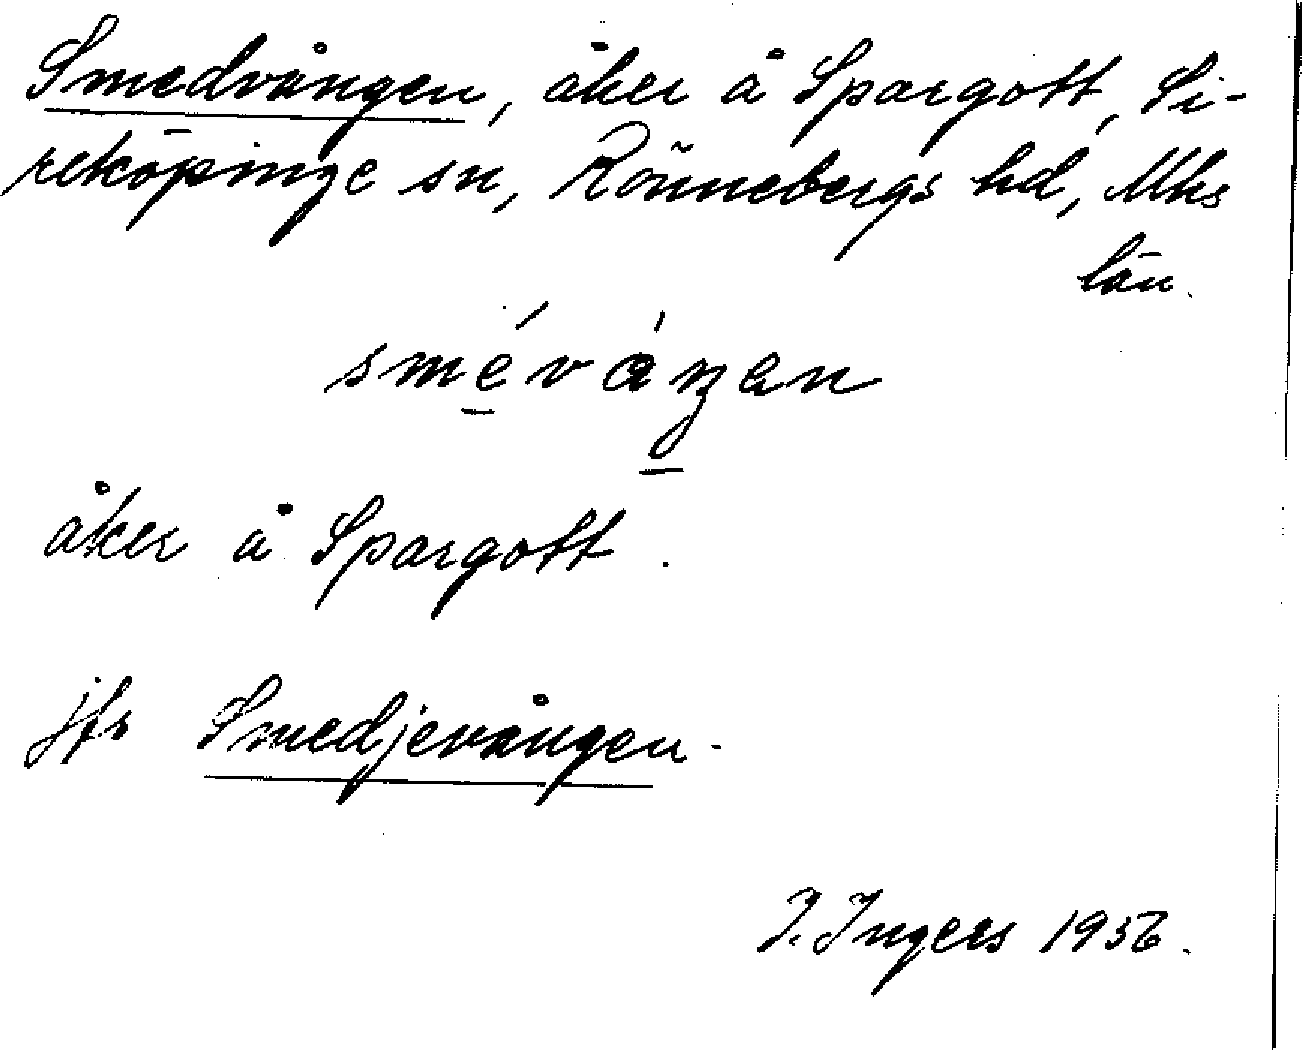 Smedvången, åker å Spargott, Si-
reköpinge sn, Rönnebergs hd, Mhs
län.
åker å Spargott.
jfr Smedjevången.
I. Ingers 1956.